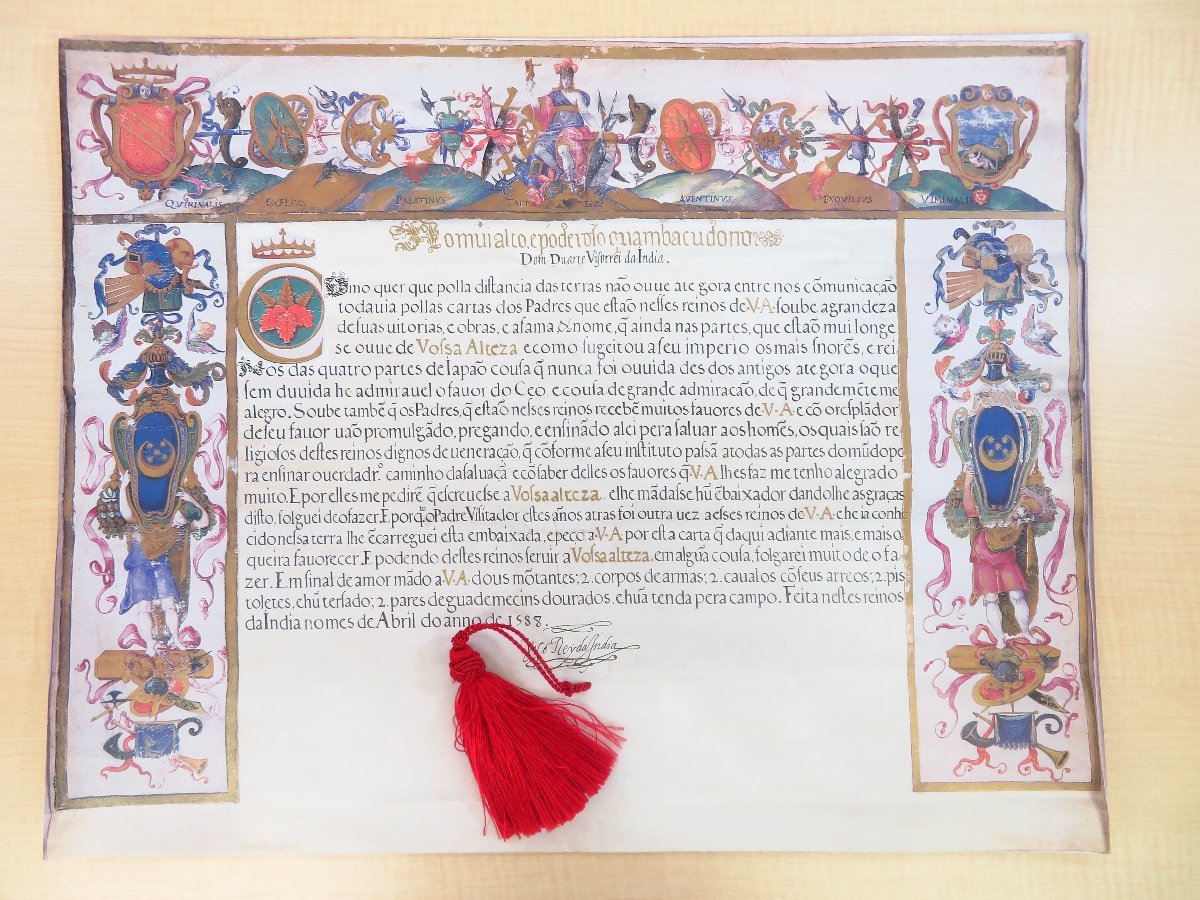 QVIRINALIS CŒLIVS PALATINVS TARP EIVS AVENTINVS EXQVILIVS VIMENALIS
Ao mui alto, e poderoso cuambacudono
Dom Duarte Visorrei da India.
Cino quer que polla distancia das terras não ouue ate gora entre nos cõmunicação
todauia pollas cartas dos Padres que estaõ nesses reinos de V.A. soube a grandeza
de suas uitorias, e obras, e a fama & nome, q̃ ainda nas partes, que estaõ mui longe
se ouue de Vossa Alteza e como sugeitou a seu imperio os mais snores, e rei
nos das quatro partes de Iapaõ cousa q̃ nunca foi ouuida des dos antigos ate gora o que
sem duuida he admirauel o fauor do Ceo, e cousa de grande admiracaõ, de q̃ grandemẽte me
alegro. Soube tambẽ q̃ os Padres, q̃ estaõ nesses reinos recebẽ muitos fauores de V.A. e cõ o resplãdor
de seu fauor uaõ promulgãdo, pregando, e ensinãdo a lei pera saluar aos homẽs, os quais saõ re-
ligiosos destes reinos dignos de ueneração, q̃ cõforme a seu instituto passã a todas as partes do mũdo pe
ra ensinar o uerdadr.º caminho da saluacã e cõ saber delles os fauores q̃ V.A lhes faz me tenho alegrado
muito. E por elles me pedirẽ q̃ escreuesse a Vossa alteza e lhe mãdasse hũ ẽbaixador dandolhe as graças
disto, folguei de o fazer. E porq̃ o Padre Visitador estes años atras foi outra uez a esses reinos de V.A. e he ia conhe
cido nessa terra lhe ẽcarreguei esta embaixada, e peço a V.A por esta carta q̃ daqui adiante mais, e mais o
queira fauorecer. E podendo destes reinos seruir a Vossa alteza em algũa cousa, folgarei muito de o fa
zer. Em sinal de amor mãdo a V.A. dous mõtantes; 2. corpos de armas; 2. caualos cõ seus arreos; 2. pis
toletes, e hũ tersado; 2. pares de guademecins dourados, e hũa tenda pera campo. Feita nestes reinos
da India no mes de Abril do anno de 1588.
o Rey da India